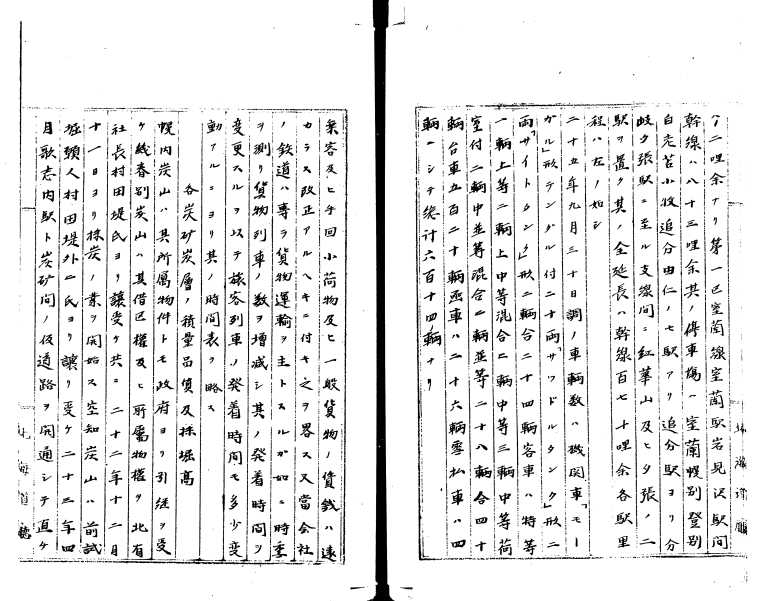 ケ二哩余ナリ第一区室蘭線室蘭駅岩見沢駅間
幹線ハ八十三哩余其ノ停車場ハ室蘭幌別登別
白老苫小牧追分由仁ノ七駅アリ追分駅ヨリ分
岐夕張駅ニ至ル支線間ニ紅葉山及ヒ夕張ノ二
駅ヲ置ク其ノ全延長ハ幹線百七十哩余各駅里
程ハ左ノ如シ
二十五年九月三十日調ノ車輌数ハ機関車「モー
ガル」形テンダル付二十両「サッドルタンク」形二
両「サイトタンク」形二輌合二十四輌客車ハ特等
一輌上等二輌上中等混合二輌中等三輌中等荷
室付二輌中並等混合二輌並等二十八輌合四十
輌台車五百二十輌函車ハ二十六輌雪払車ハ四
輌ニシテ総計六百十四輌ナリ
北海道庁
乗客及ヒ手回小荷物及ヒ一般貨物ノ賃銭ハ遠
カラス改正アルヘキニ付キ之ヲ畧ス又当会社
ノ鉄道ハ専ラ貨物運輸ヲ主トスルカ如ニ時季
ヲ測リ貨物列車ノ数ヲ増减シ其ノ発着時間ヲ
変更スルヲ以テ旅客列車ノ発着時間モ多少変
動アルニヨリ其ノ時間表ヲ略ス
各炭砿炭層ノ積量品質及採堀高
幌内炭山ハ其所属物件トモ政府ヨリ引継ヲ受
ケ幾春別炭山ハ其借区權及ヒ所属物權ヲ北有
社長村田堤氏ヨリ譲受ケ共ニ二十二年十二月
十一日ヨリ採炭ノ業ヲ開始ス空知炭山ハ前試
堀願人村田堤外二氏ヨリ譲リ受ケ二十三年四
月歌志内駅ト炭砿間ノ仮道路ヲ開通シテ直ケ
北海道庁